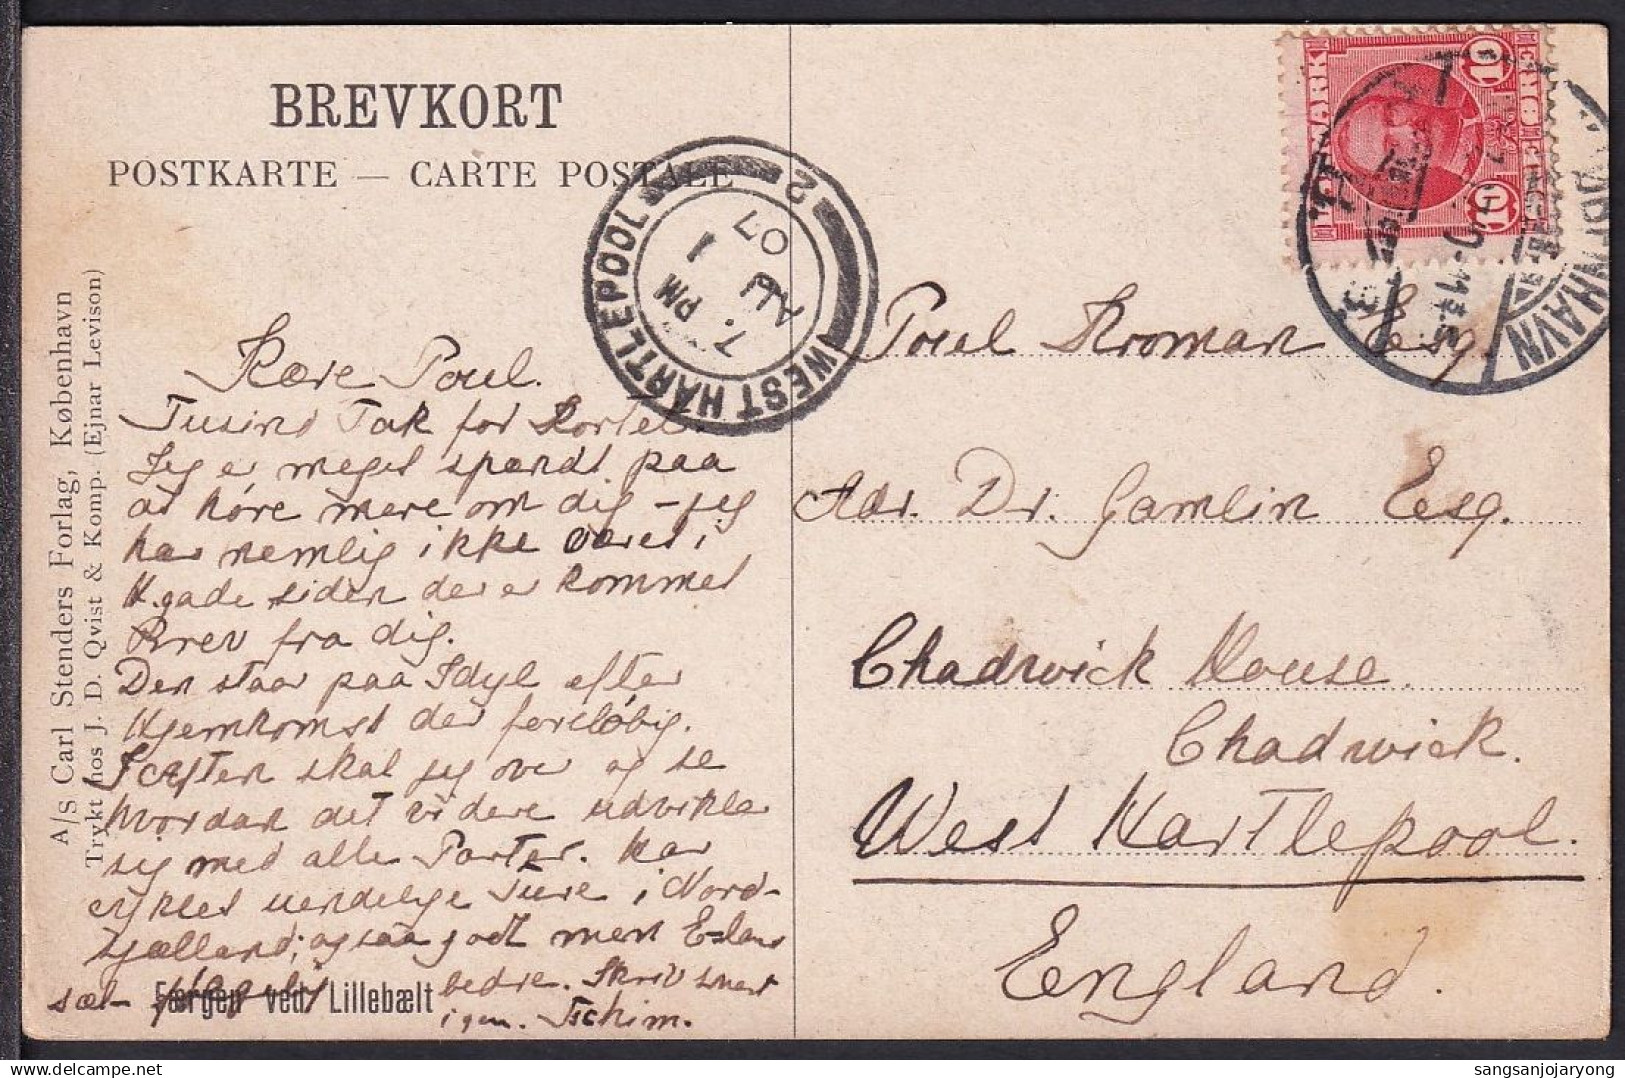 BREVKORT
POSTKARTE — CARTE POSTALE
A/S Carl Stenders Forlag, København
Trykt hos J. D. Qvist & Komp. (Ejnar Levison)
WEST HARTLEPOOL
2
7. PM
AU 1
07
DANMARK
10 10
KJØBENHAVN
Kære Poul.
Tusind Tak for Kortet.
Jeg er meget spændt paa
at høre mere om dig – jeg
har nemlig ikke været i
H.gade siden der er kommet
Brev fra dig.
Den staar paa Idyl efter
Hjemkomst der foreløbig.
I Aften skal jeg over og se
hvordan det videre udvikler
sig med alle Parter. Har
cyklet uendelige Ture i Nord-
sjælland; ogsaa godt men
bedre. Skriv snart
igen.
Færgen ved Lillebælt
Poul Kroman Esq
Adr. Dr. Gamlin Esq.
Chadwick House.
Chadwick.
West Hartlepool.
England.
sangsanjojaryong